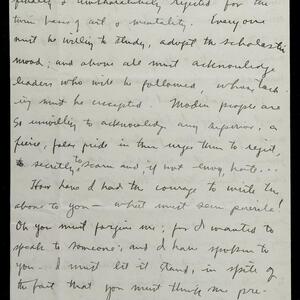 finally & wholeheartedly rejected for the
twin basis of art & mentality. Everyone
must be willing to study, adopt the scholastic
mood; and above all must acknowledge
leaders who will be followed, whose
must be accepted. Modern people are
so unwilling to acknowledge any superior, a
fierce, false pride in them urges them to reject,
secretly to scorn and, if not envy, hate...
How have I had the courage to write the
above to you — what must seem puerile!
Oh you must forgive me; for I wanted to
speak to someone, and I have spoken to
you. I must let it stand, in spite of
the fact that you must think me pre-